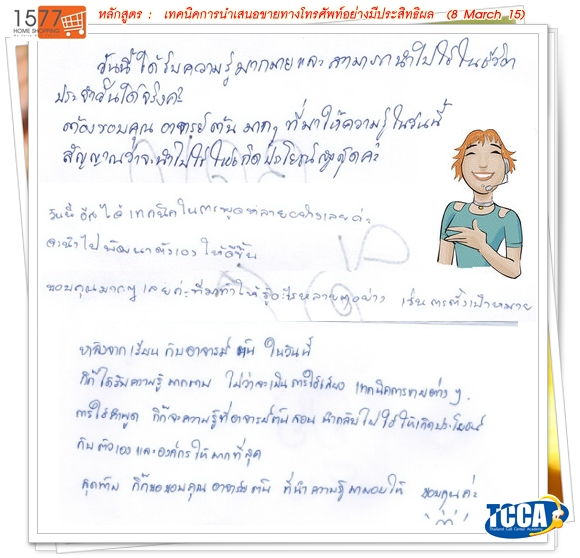 1577
HOME SHOPPING
หลักสูตร : เทคนิคการนำเสนอขายทางโทรศัพท์อย่างมีประสิทธิผล (8 March 15)
วันนี้ได้รับความรู้มากมายและสามารถนำไปใช้ในชีวิต
ประจำวันได้จริงค่ะ
ต้องขอบคุณ อาจารย์ต้น มากๆ ที่มาให้ความรู้ในวันนี้
สัญญาณว่าจะนำไปใช้ให้เกิดประโยชน์สูงสุดค่ะ
วันนี้ได้เทคนิคในการพูดหลายอย่างเลยค่ะ
จะนำไปพัฒนาตัวเองให้ดีขึ้น
ขอบคุณมากๆ เลยค่ะที่มาทำให้รู้อะไรหลายๆอย่าง เช่นการตั้งเป้าหมาย
หลังจากเรียนกับอาจารย์ต้น ในวันนี้
ก็ได้รับความรู้มากมาย ไม่ว่าจะเป็นการใช้เสียง เทคนิคการขายต่างๆ
การใช้คำพูด ก็จะความรู้ที่อาจารย์ต้นสอน นำกลับไปใช้ให้เกิดประโยชน์
กับตัวเองและองค์กรให้มากที่สุด
สุดท้าย ก็ขอขอบคุณ อาจารย์ต้น ที่นำความรู้มามอบให้ ขอบคุณค่ะ
TCCA
Thailand Call Center Academy